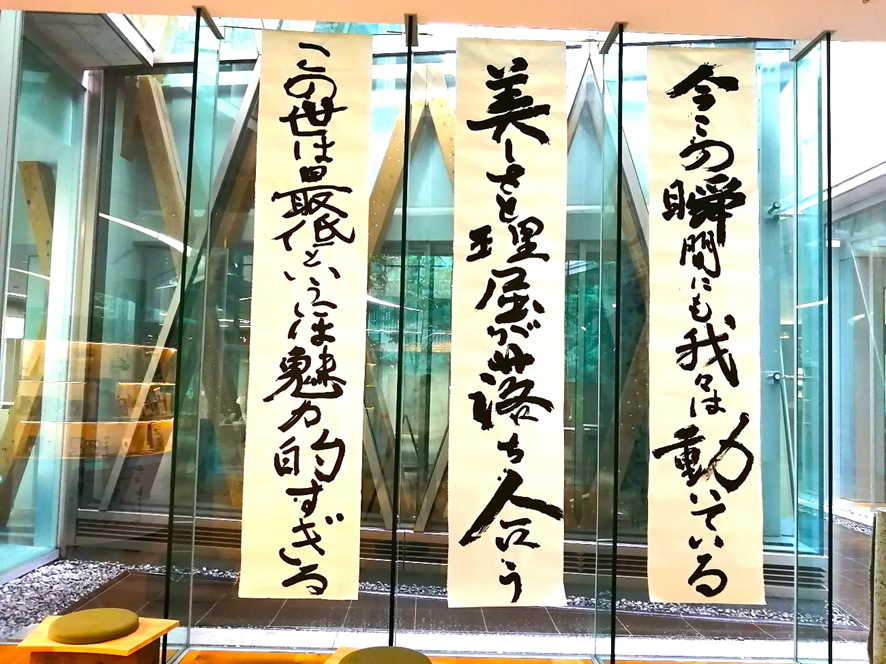 今この瞬間にも我々は動いている
美しさと理屈が落ち合う
この世は最低というには魅力的すぎる